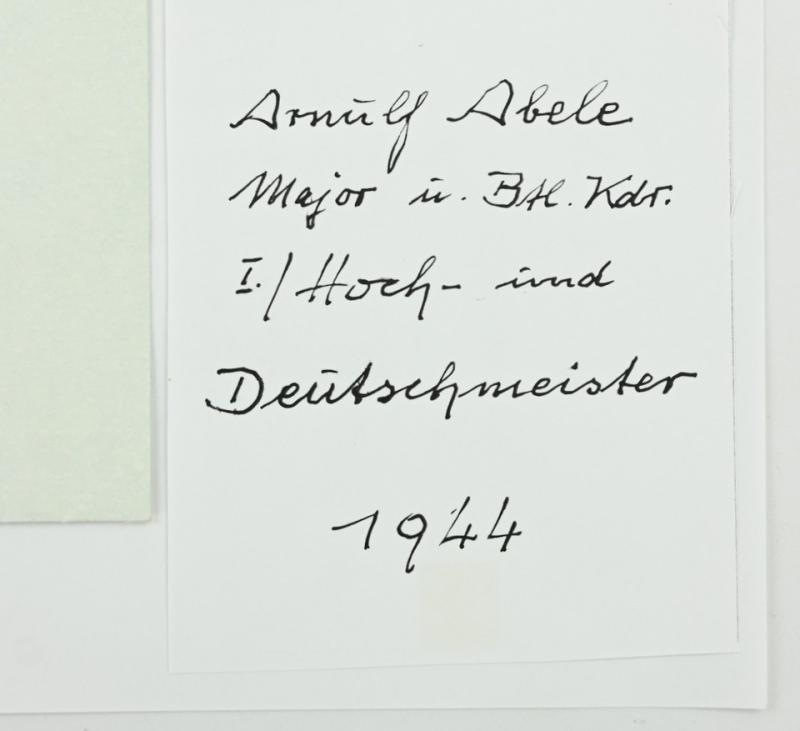 Arnulf Abele
Major u. Btl. Kdr.
I./Hoch- und
Deutschmeister
1944